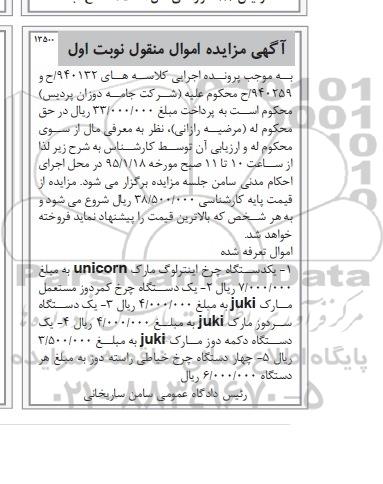 ۱۳۵۰۰
آگهی مزایده اموال منقول نوبت اول
به موجب پرونده اجرایی کلاسه های ۹۴۰۱۳۲/ح و
۹۴۰۲۵۹/ح محکوم علیه (شرکت جامه دوزان پردیس)
محکوم است به پرداخت مبلغ ۳۳/۰۰۰/۰۰۰ ریال در حق
محکوم له (مرضیه رازانی)، نظر به معرفی مال از سوی
محکوم له و ارزیابی آن توسط کارشناس به شرح زیر لذا
از ساعت ۱۰ تا ۱۱ صبح مورخه ۹۵/۱/۱۸ در محل اجرای
احکام مدنی سامن جلسه مزایده برگزار می شود. مزایده از
قیمت پایه کارشناسی ۳۸/۵۰۰/۰۰۰ ریال شروع می شود و
به هر شخص که بالاترین قیمت را پیشنهاد نماید فروخته
خواهد شد.
اموال تعرفه شده
۱- یکدستگاه چرخ اینترلوگ مارک unicorn به مبلغ
۷/۰۰۰/۰۰۰ ریال ۲- یک دستگاه چرخ کمردوز مستعمل
مارک juki به مبلغ ۴/۰۰۰/۰۰۰ ریال ۳- یک دستگاه
سردوز مارک juki به مبلغ ۴/۰۰۰/۰۰۰ ریال ۴- یک
دستگاه دکمه دوز مارک juki به مبلغ ۳/۵۰۰/۰۰۰
ریال ۵- چهار دستگاه چرخ خیاطی راسته دوز به مبلغ هر
دستگاه ۶/۰۰۰/۰۰۰ ریال
رئیس دادگاه عمومی سامن ساریخانی
۰۲۱-۸۸۳۴۹۶۷۰-۵